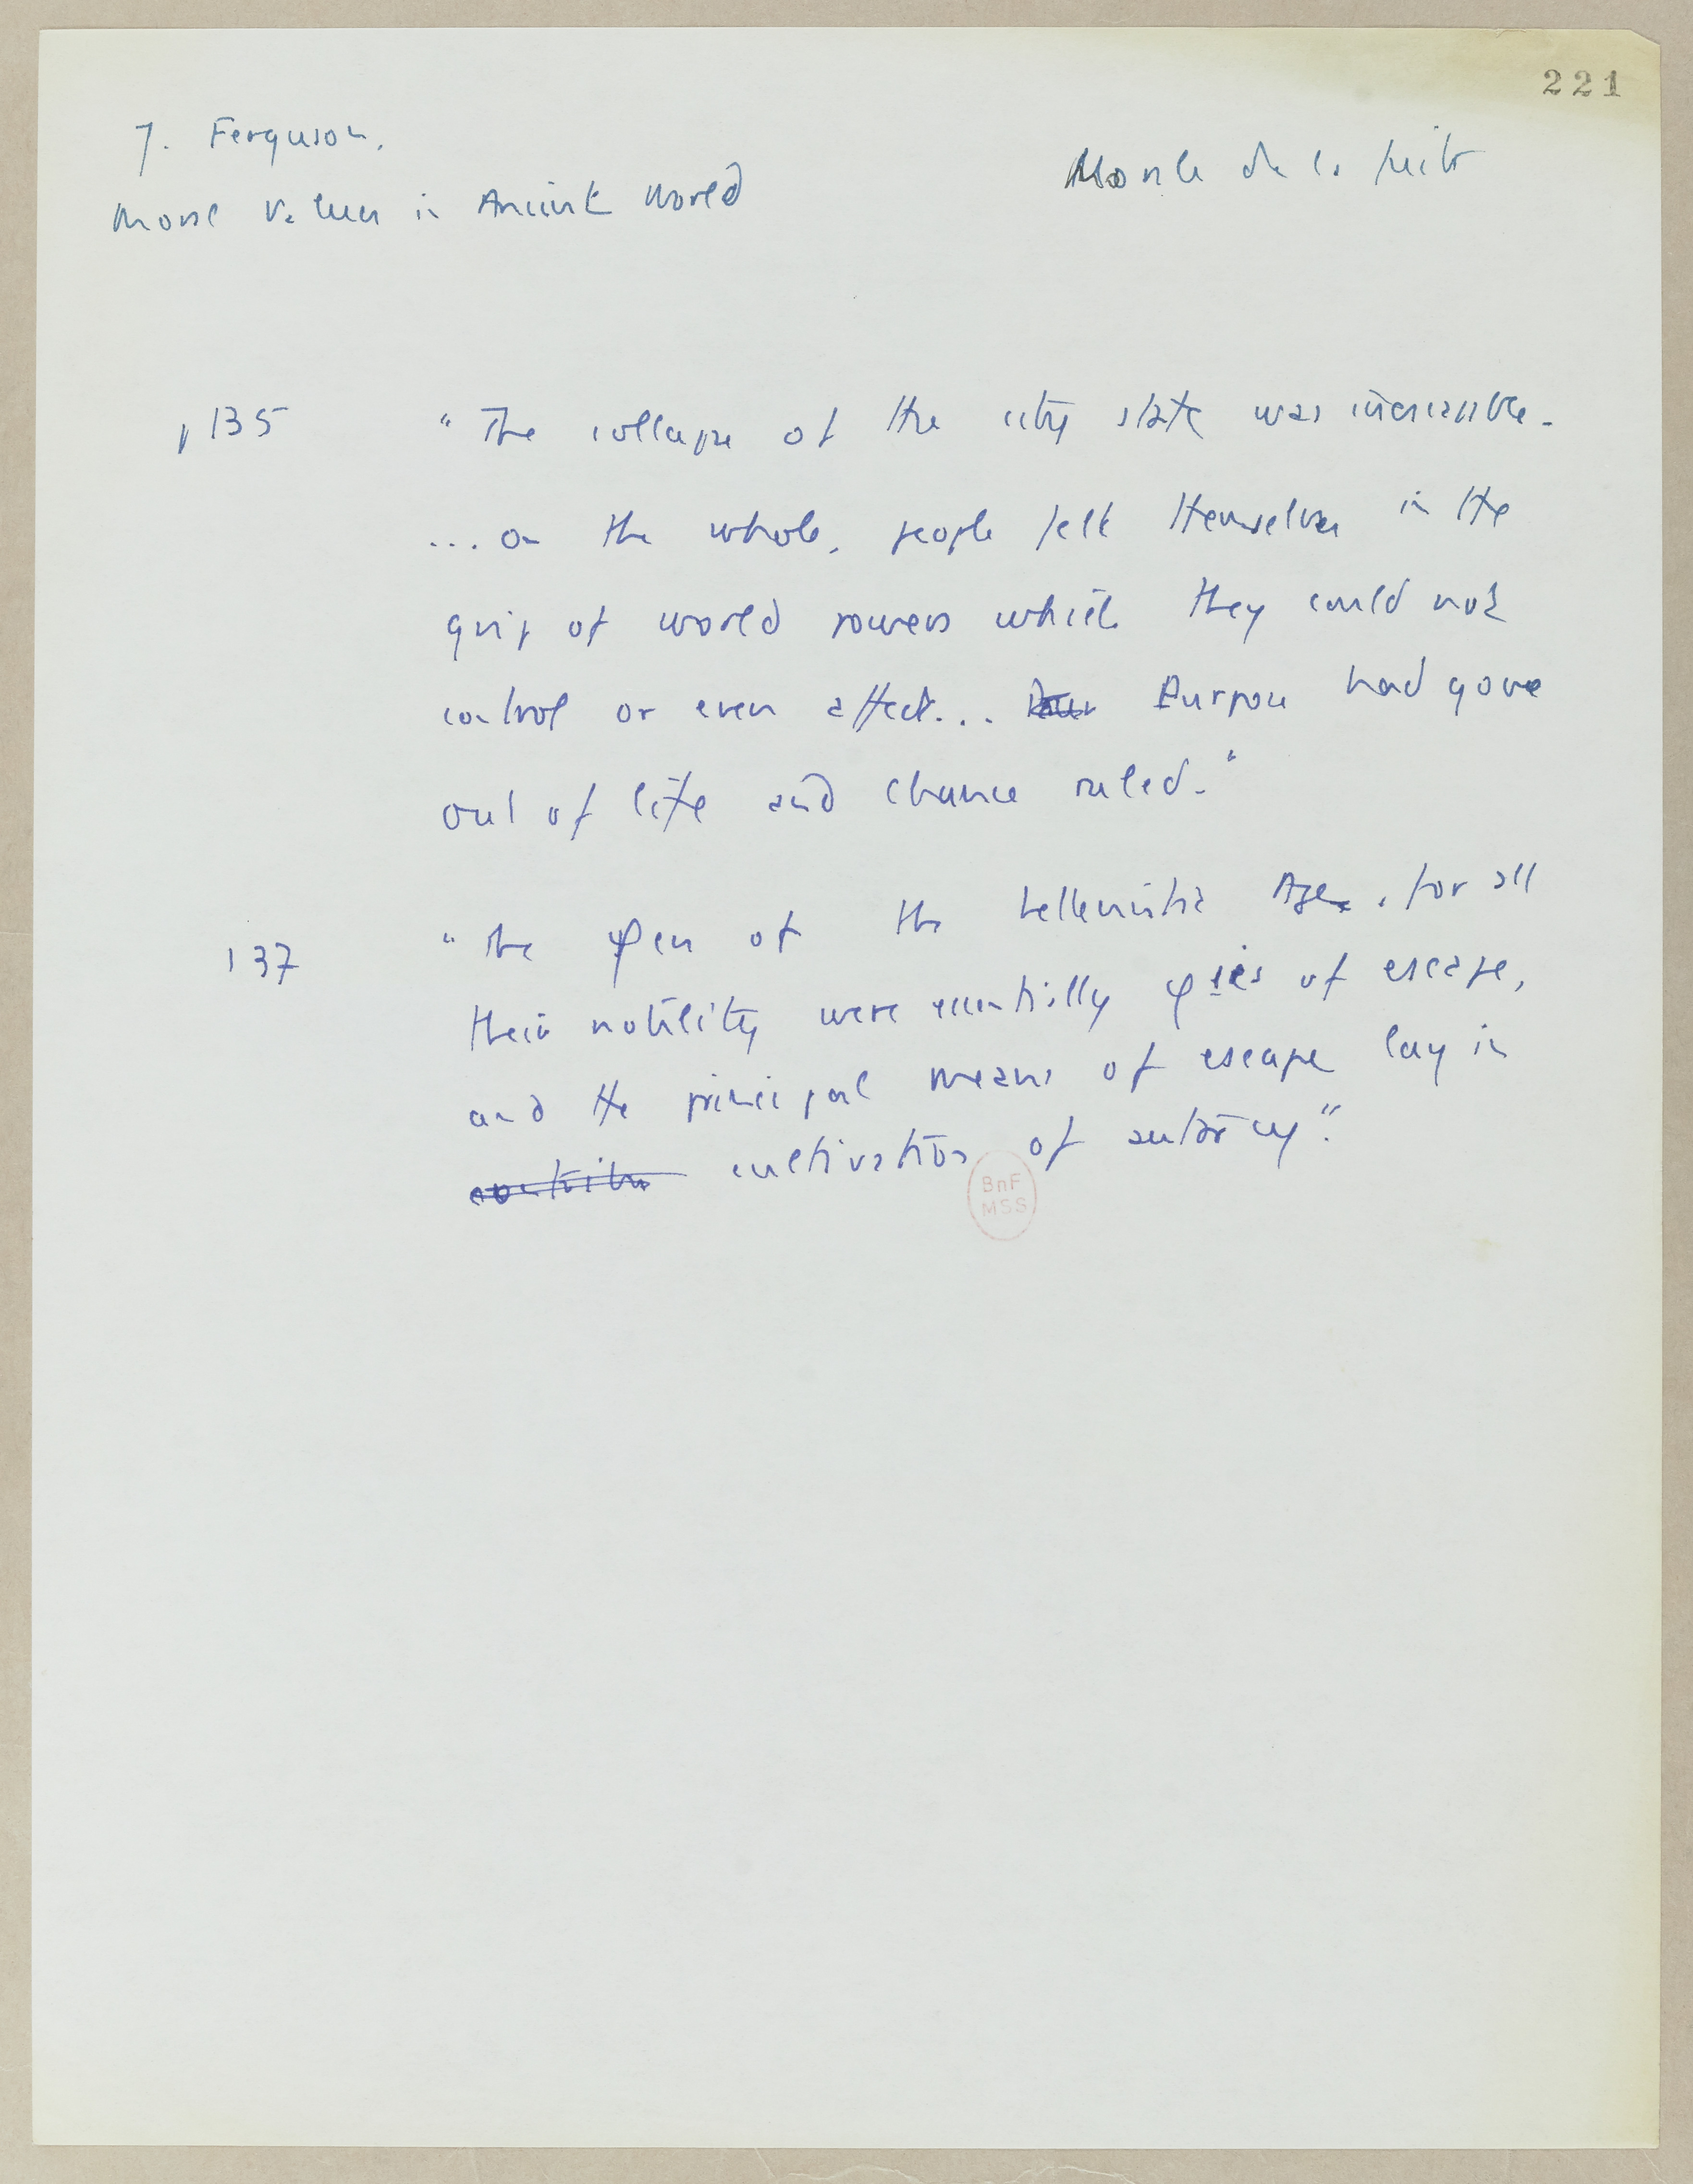 221
J. Ferguson.
Moral Values in Ancient World
Morale de la
p 135
"The collapse of the city state was
... on the whole, people felt themselves in the
grip of world powers which they could not
control or even affect... Purpose had gone
out of life and chance ruled."
137
"the φies of the hellenistic Age, for all
their nobility were essentially φies of escape,
and the principal means of escape lay in
cultivation of autarcy".
BnF
MSS